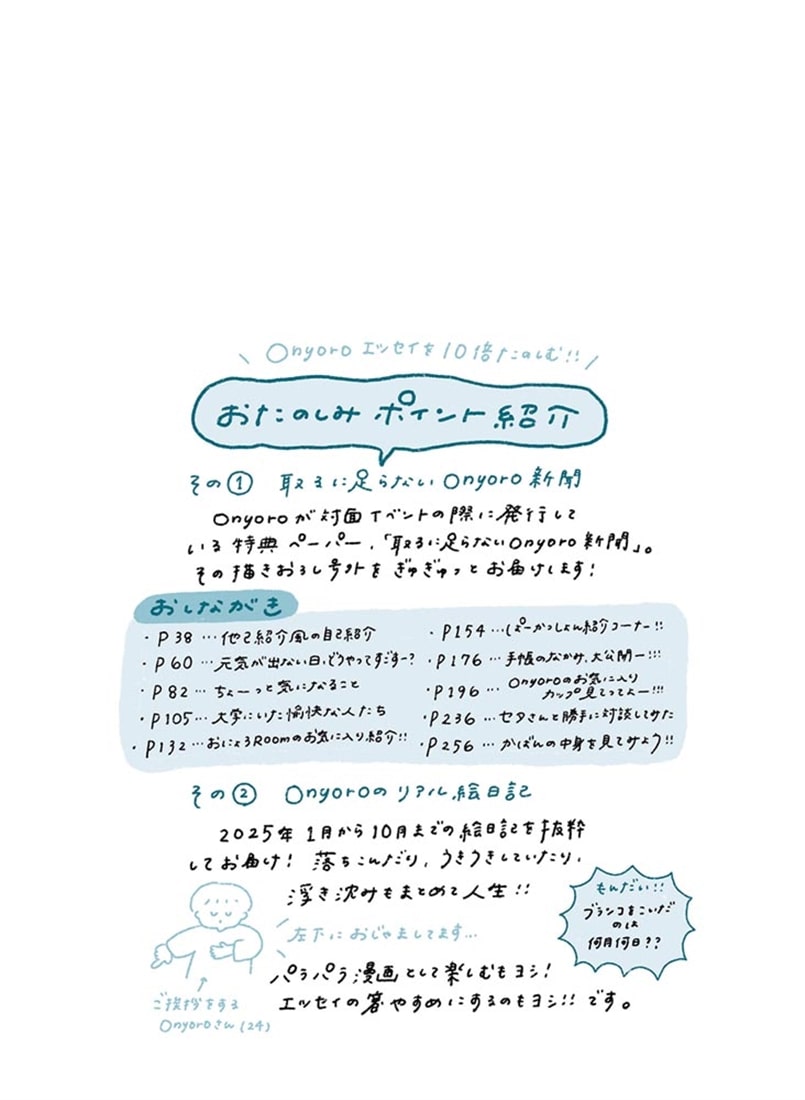 \ Onyoroエッセイを10倍たのしむ!! /
おたのしみポイント紹介
その① 取るに足らないOnyoro新聞
Onyoroが対面イベントの際に発行して
いる特典ペーパー、「取るに足らないOnyoro新聞」。
その描きおろし号外をぎゅぎゅっとお届けします!
おしながき
・P38…他己紹介風の自己紹介
・P60…元気が出ない日、どうやってすごすー?
・P82…ちょーっと気になること
・P105…大学にいた愉快な人たち
・P132…おにょろRoomのお気に入り紹介!!
・P154…ぱーかっしょん紹介コーナー!!
・P176…手帳のなかみ、大公開ー!!!
・P196…Onyoroのお気に入り
カップ見てってよー!!!
・P236…セタさんと勝手に対談してみた
・P256…かばんの中身を見てみよう!!
その② Onyoroのリアル絵日記
2025年1月から10月までの絵日記を抜粋
してお届け! 落ちこんだり、うきうきしていたり、
浮き沈みもまとめて人生!!
もんだい!!
ブランコをこいだ
のは
何月何日??
左下におじゃましてます…
パラパラ漫画として楽しむもヨシ!
エッセイの箸やすめにするのもヨシ!!です。
ご挨拶をする
Onyoroさん(24)